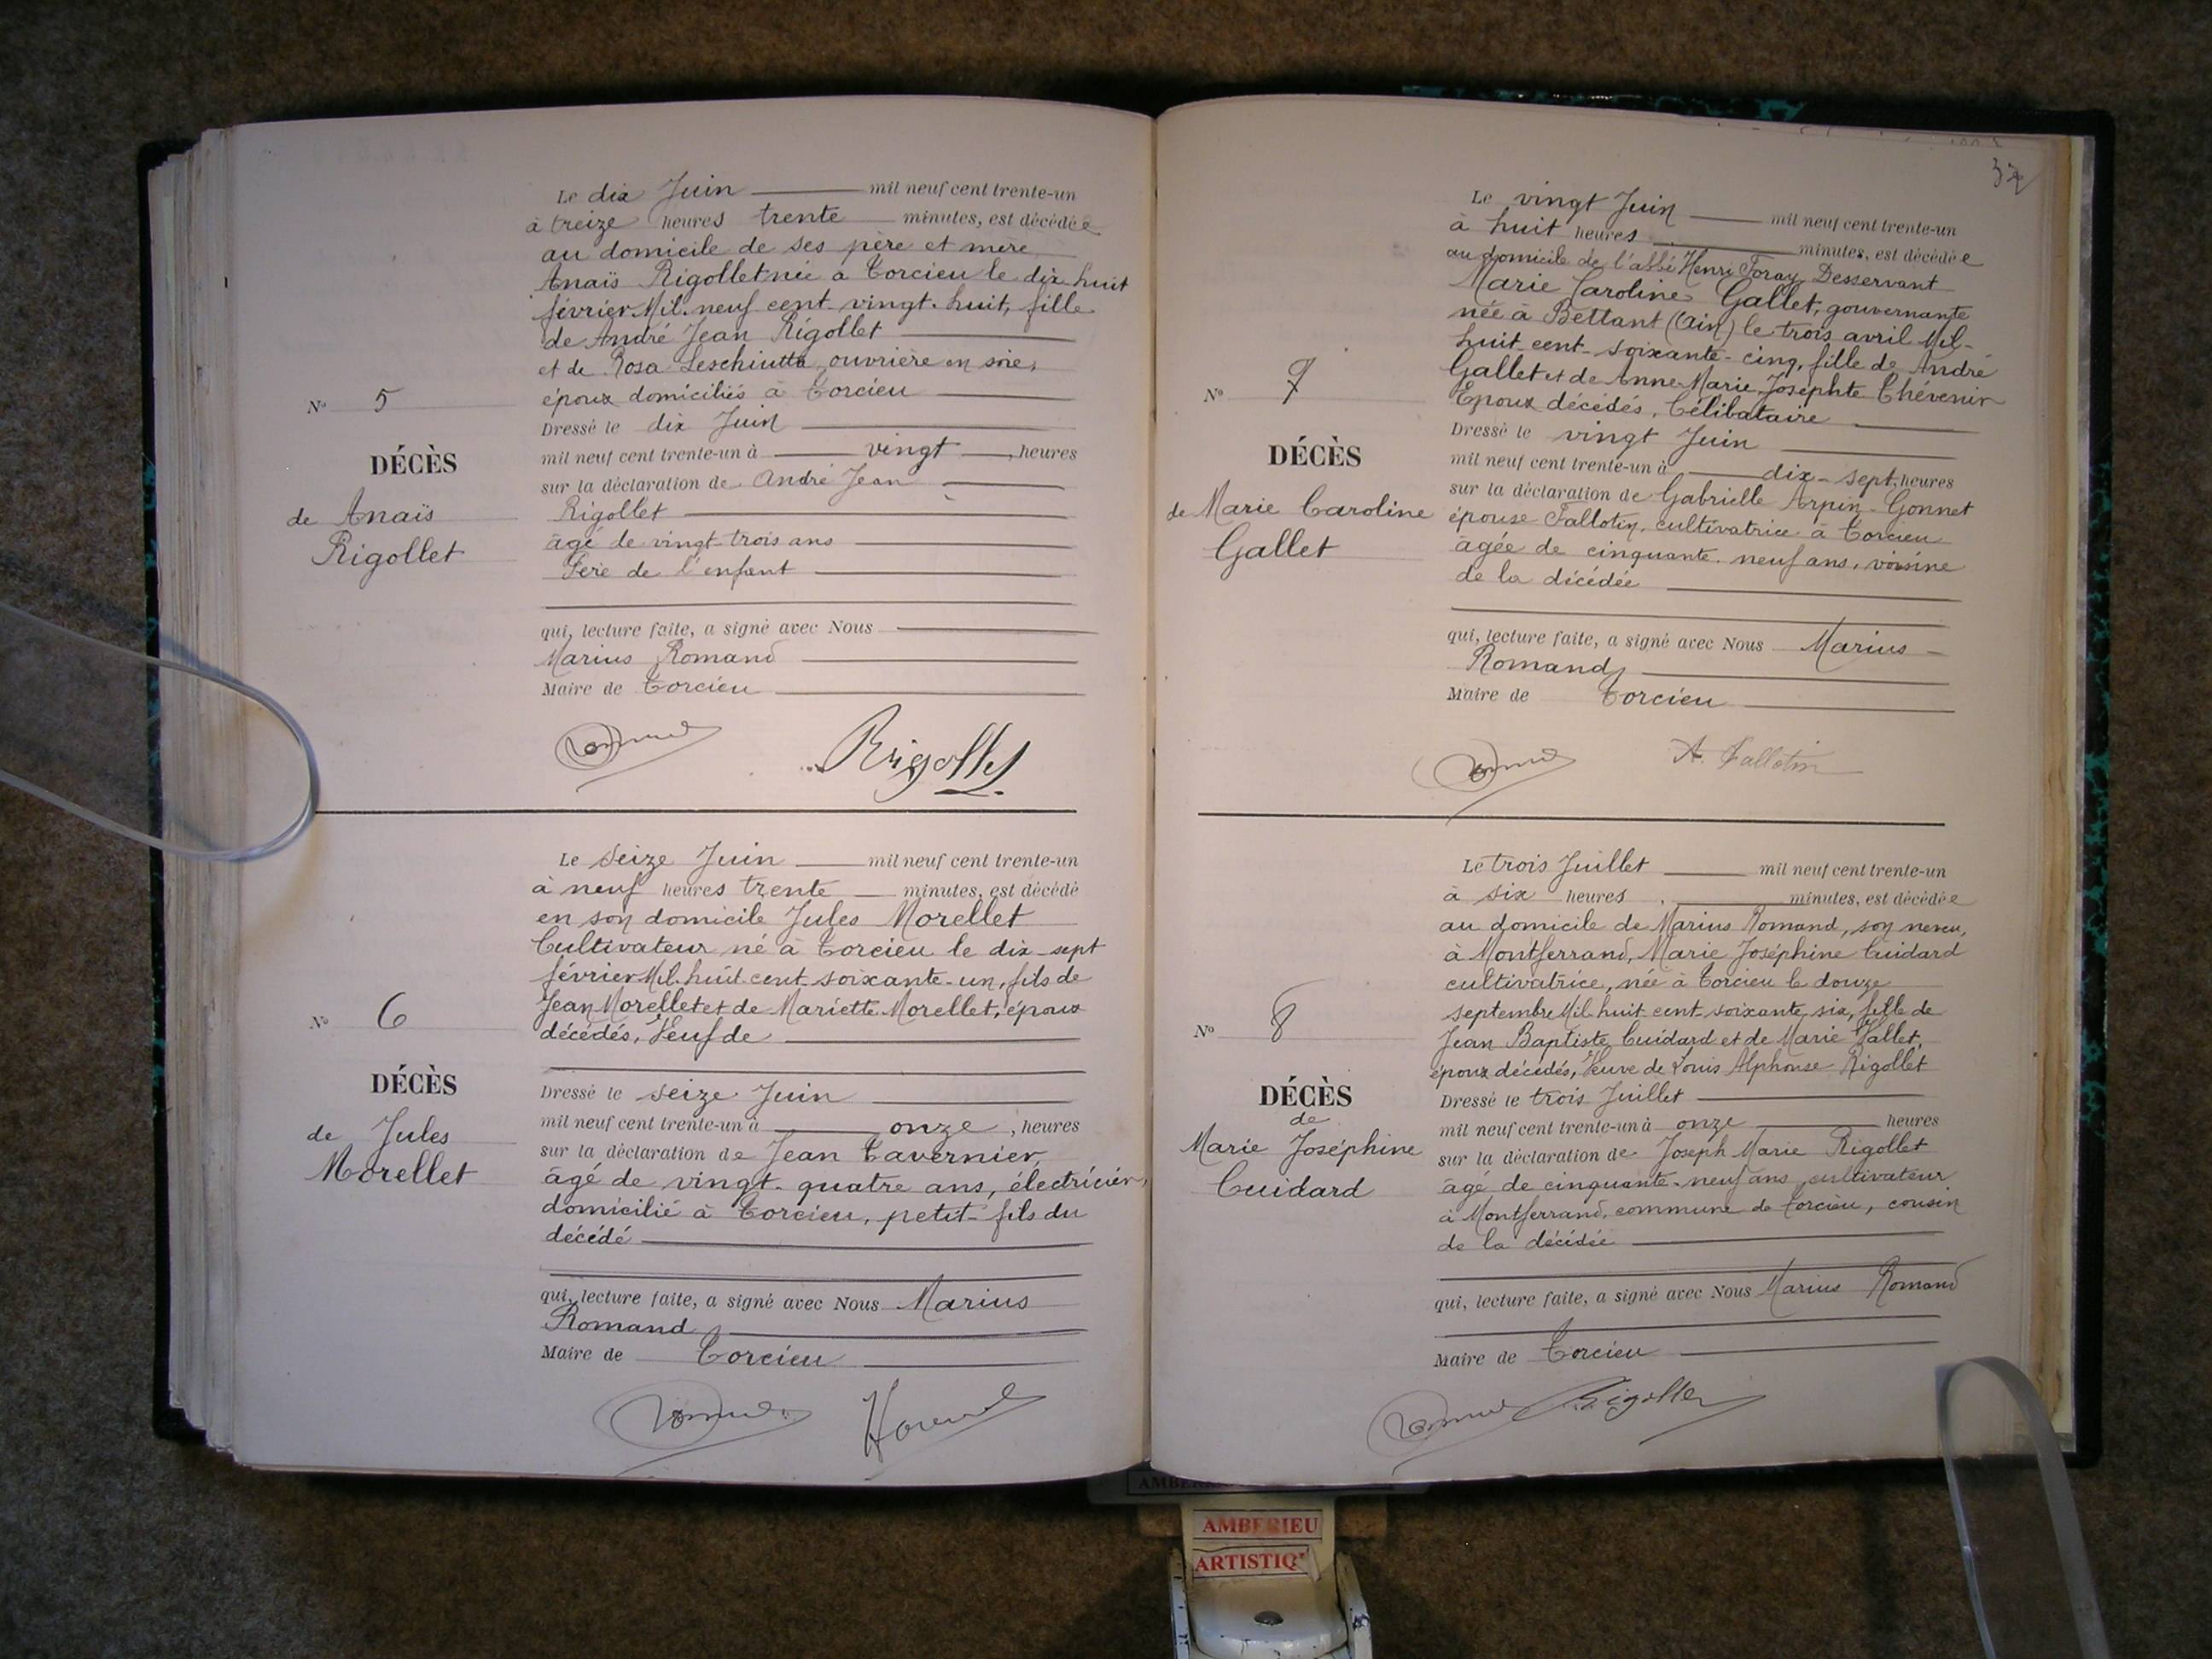 Le dix Juin mil neuf cent trente-un
à treize heures trente minutes, est décédée
au domicile de ses père et mère
Anaïs Rigollet née à Torcieu le dix huit
février Mil neuf cent vingt-huit, fille
de André Jean Rigollet
et de Rosa Leschiutta, ouvrière en soie,
époux domiciliés à Torcieu
Dressé le dix Juin
mil neuf cent trente-un à vingt, heures
sur la déclaration de André Jean
Rigollet
âgé de vingt-trois ans
Père de l'enfant
qui, lecture faite, a signé avec Nous
Marius Romand
Maire de Torcieu
N° 5
DÉCÈS
de Anaïs
Rigollet
Rigollet
Le Seize Juin mil neuf cent trente-un
à neuf heures trente minutes, est décédé
en son domicile Jules Morellet
Cultivateur né à Torcieu le dix-sept
février Mil huit cent soixante-un, fils de
Jean Morellet et de Mariette Morellet, époux
décédés, Veuf de
Dressé le seize Juin
mil neuf cent trente-un à onze, heures
sur la déclaration de Jean Tavernier
âgé de vingt-quatre ans, électricien,
domicilié à Torcieu, petit-fils du
décédé
qui, lecture faite, a signé avec Nous Marius
Romand
Maire de Torcieu
N° 6
DÉCÈS
de Jules
Morellet
37
Le vingt Juin mil neuf cent trente-un
à huit heures minutes, est décédée
au domicile de l'abbé Henri Foray, Desservant
Marie Caroline Gallet, gouvernante
née à Bettant (Ain) le trois avril Mil-
huit-cent-soixante-cinq, fille de André
Gallet et de Anne Marie Josephte Chévenin
Epoux décédés, Célibataire
Dressé le vingt Juin
mil neuf cent trente-un à dix-sept, heures
sur la déclaration de Gabrielle Arpin-Gonnet
épouse Fallotin, cultivatrice à Torcieu
âgée de cinquante-neuf ans, voisine
de la décédée
qui, lecture faite, a signé avec Nous Marius
Romand
Maire de Torcieu
N° 7
DÉCÈS
de Marie Caroline
Gallet
A. Fallotin
Le trois Juillet mil neuf cent trente-un
à six heures minutes, est décédée
au domicile de Marius Romand, son neveu,
à Montferrand, Marie Joséphine Cuidard
cultivatrice, née à Torcieu le douze
septembre Mil huit cent soixante six, fille de
Jean Baptiste Cuidard et de Marie Vallet,
époux décédés, Veuve de Louis Alphonse Rigollet
Dressé le trois Juillet
mil neuf cent trente-un à onze heures
sur la déclaration de Joseph Marie Rigollet
âgé de cinquante-neuf ans, cultivateur
à Montferrand, commune de Torcieu, cousin
de la décédée
qui, lecture faite, a signé avec Nous Marius Romand
Maire de Torcieu
N° 8
DÉCÈS
de
Marie Joséphine
Cuidard
Rigollet
AMBERIEU
ARTISTIQ